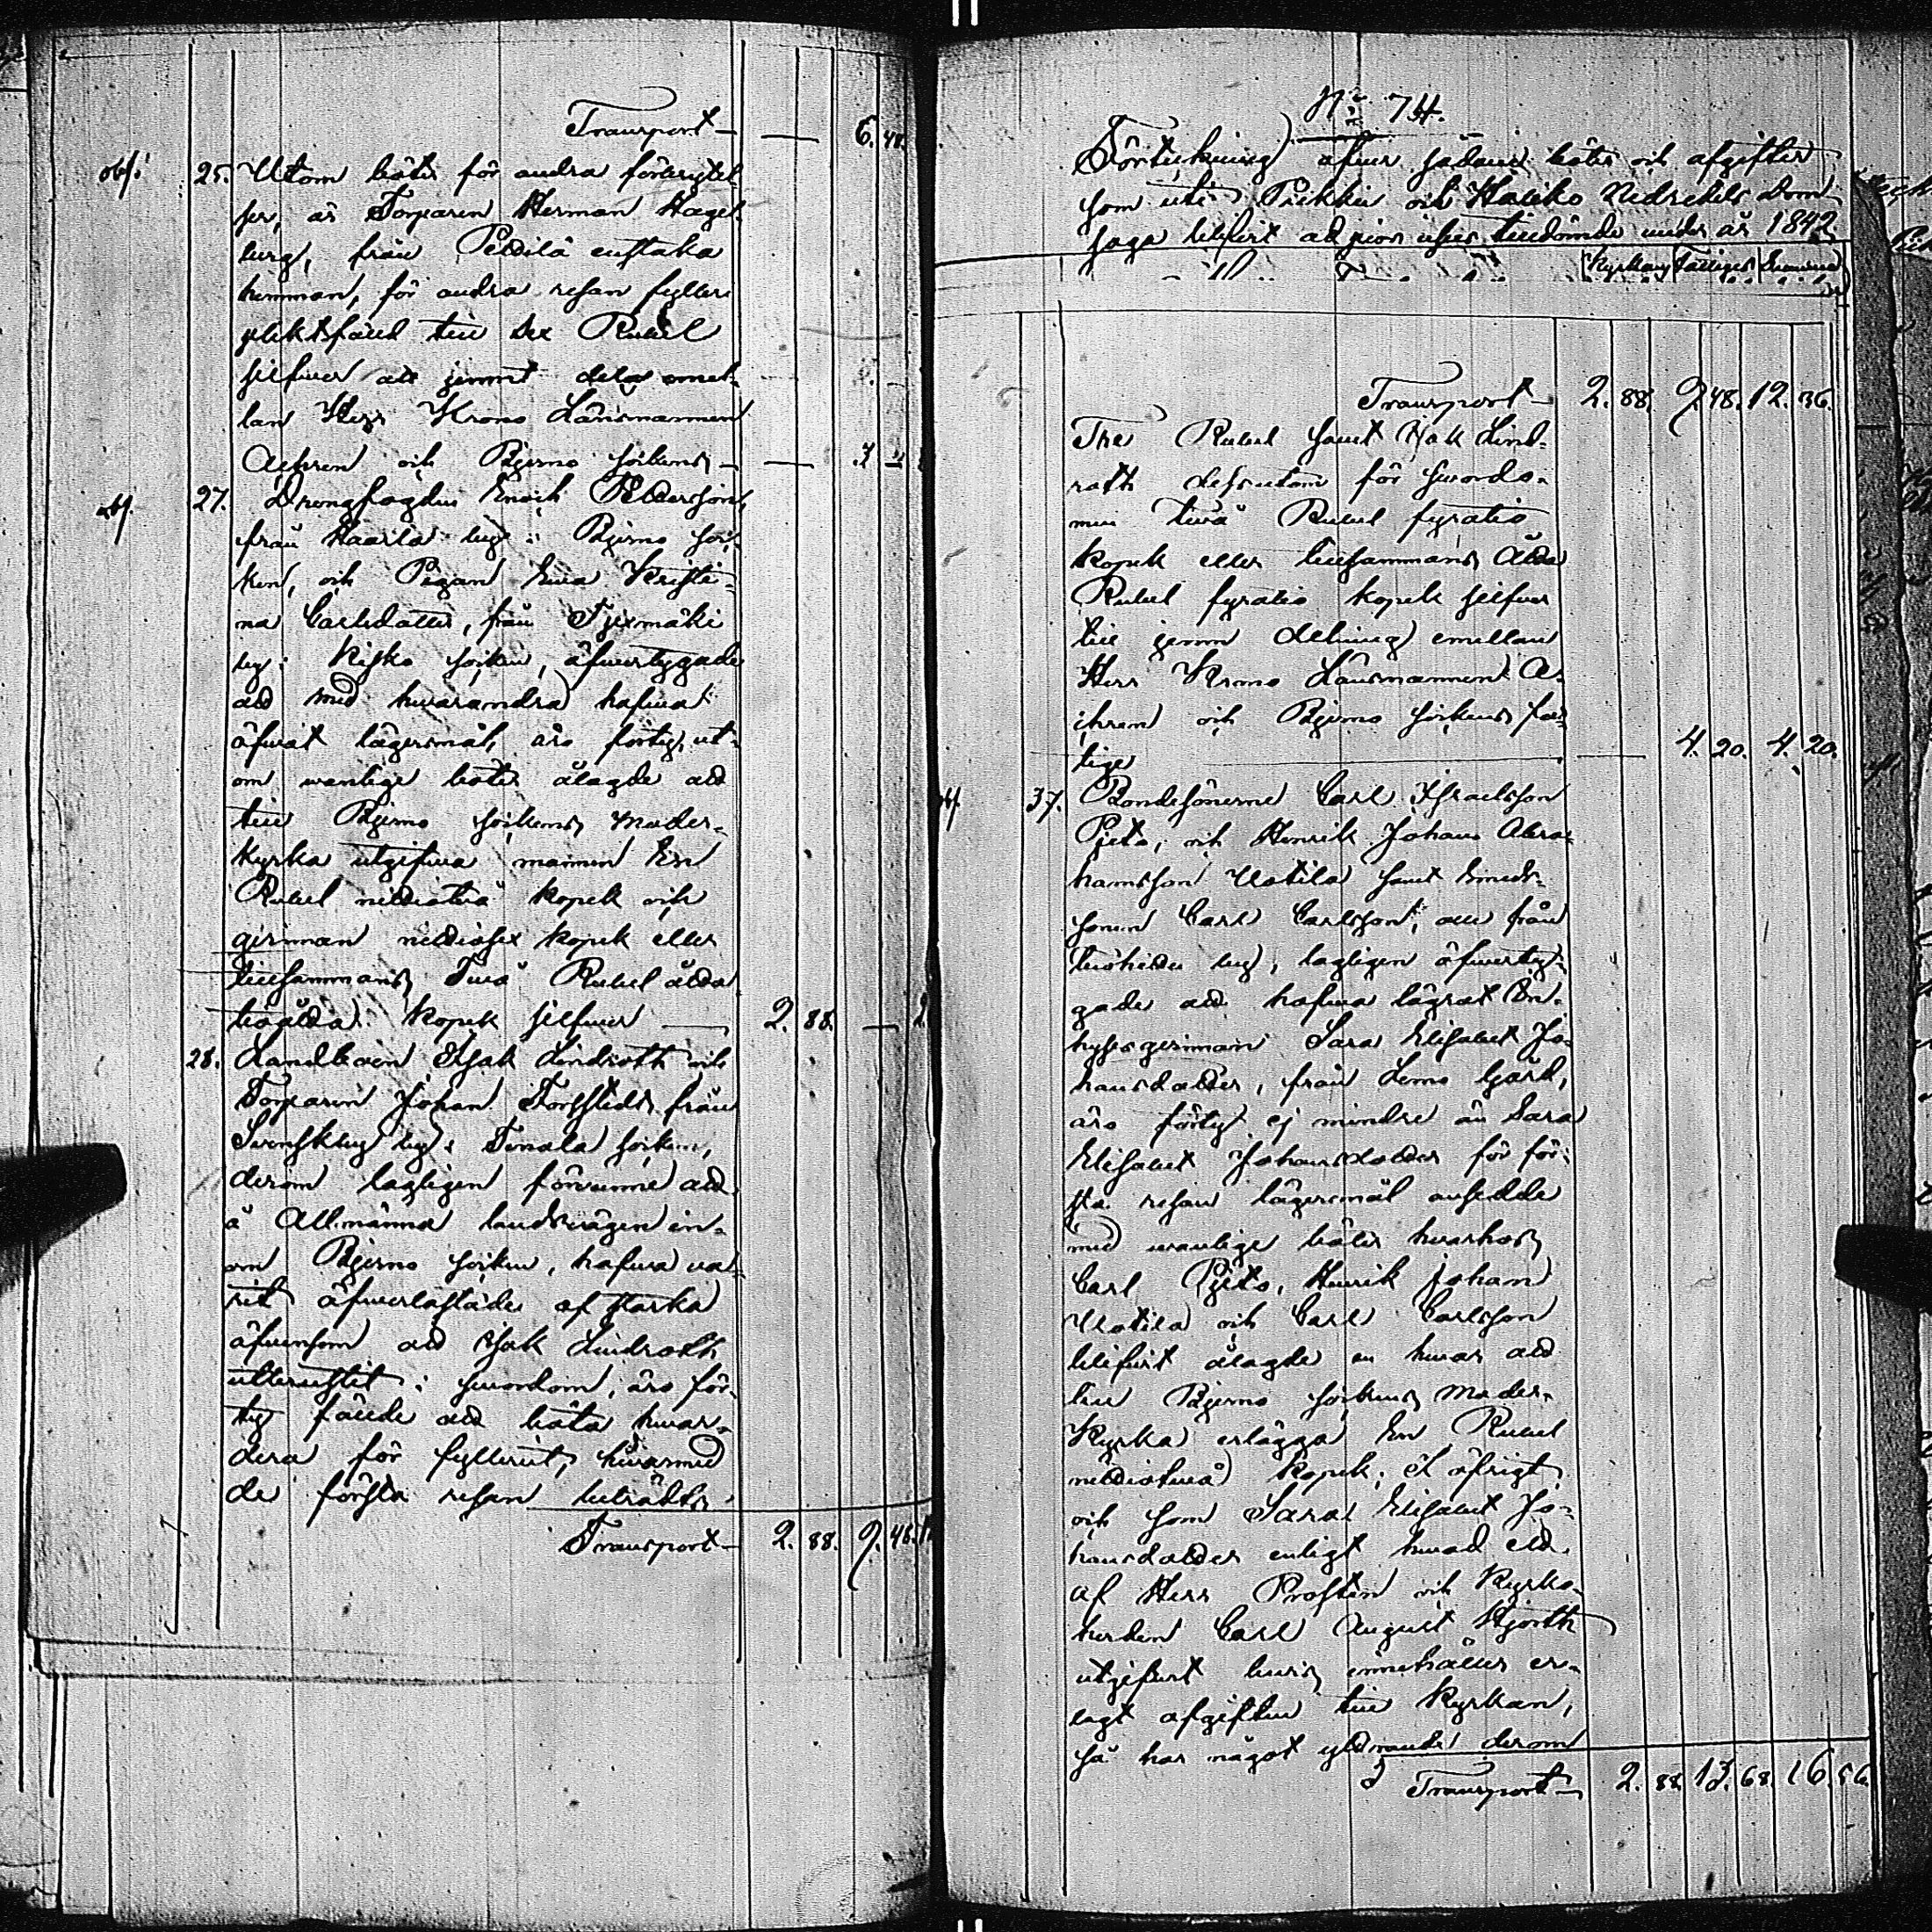 Transport — — 6. 48.
obs: 25. Utom böter för andra förbrytel-
ser, är Torparen Herman Hagel-
berg, från Pedilä enstaka
hemman, för andra resan fylleri
pliktfäld till Sex Rubel
silfver att jemnt delas emel-
lan Herr Krono Länsmannen
Achren och Bjerno Sockens — — 3 —
obs. 27. Drengfogden Enoch Pettersson,
från Haarla by i Bjerno Soc-
ken, och Pigan Eva Kristi-
na Carlsdotter, från Tjixmäki
by i Kisko Socken, äfvertygade
att med hvarandra hafva
öfvat lägersmål, äro förty, ut-
om vanlige böter ålagde att
till Bjerno Sockens Moder-
kyrka utgifva mannen En
Rubel nittiotvå kopek och
qvinnan nittiosex kopek eller
tillsammans Två Rubel åtta
tioåtta kopek silfver — 2. 88. —
28. Landboen Isak Lindroth och
Torparen Johan Forsstedt från
Svenskby by i Tenala Socken,
derom lagligen förvunne att
å Allmänna landsvägen in-
om Bjerno Socken, hafva va-
rit öfverlastade af starka
äfvensom att Isak Lindroth
utbrustit i svordom, äro för-
ty fälde att böta hvar-
dera för fylleriet, hvarmed
de första resan beträdts,
Transport — 2. 88. 9. 48.
No 74.
Förteckning öfver sådane böter och afgifter
som uti Pikkis och Halikko Nedredels Dom-
saga blifvit ad pios usus tilldömde under år 1842.
Kyrkans Fattiges Summa
Transport — 2. 88. 9. 48. 12. 36.
Tre Rubel samt Isak Lind-
roth dessutom för svordo-
men två Rubel fyratio
kopek eller tillsammans Åtta
Rubel fyratio kopek silfver
till jemn delning emellan
Herr Krono Länsmannen A-
chren och Bjerno Sockens fat-
tige — — 4. 20. 4. 20.
obs. 37. Bondesönerne Carl Israelsson
Pjets, och Henrik Johan Abra-
hamsson Uotila samt Smeds-
sonen Carl Carlsson, alle från
by, lagligen öfverty-
gade att hafva lägrat En-
hysesqvinnan Sara Elisabet Jo-
hansdotter, från Lemo Gård,
äro förty ej mindre än Sara
Elisabet Johansdotter för för-
sta resan lägersmål ansedde
med vanlige böter hvarhos
Carl Pjets, Henrik Johan
Uotila och Carl Carlsson
blifvit ålagde en hvar att
till Bjerno Sockens Moder-
Kyrka erlägga En Rubel
nittiotvå kopek; i öfrigt
och som Sara Elisabet Jo-
hansdotter enligt hvad ett
af Herr Prosten och Kyrko-
herden Carl August Hjorth
utgifvit bevis innehåller er-
lagt afgiften till Kyrkan,
så har något yttrande derom
Transport — 2. 88. 13. 68. 16. 56.